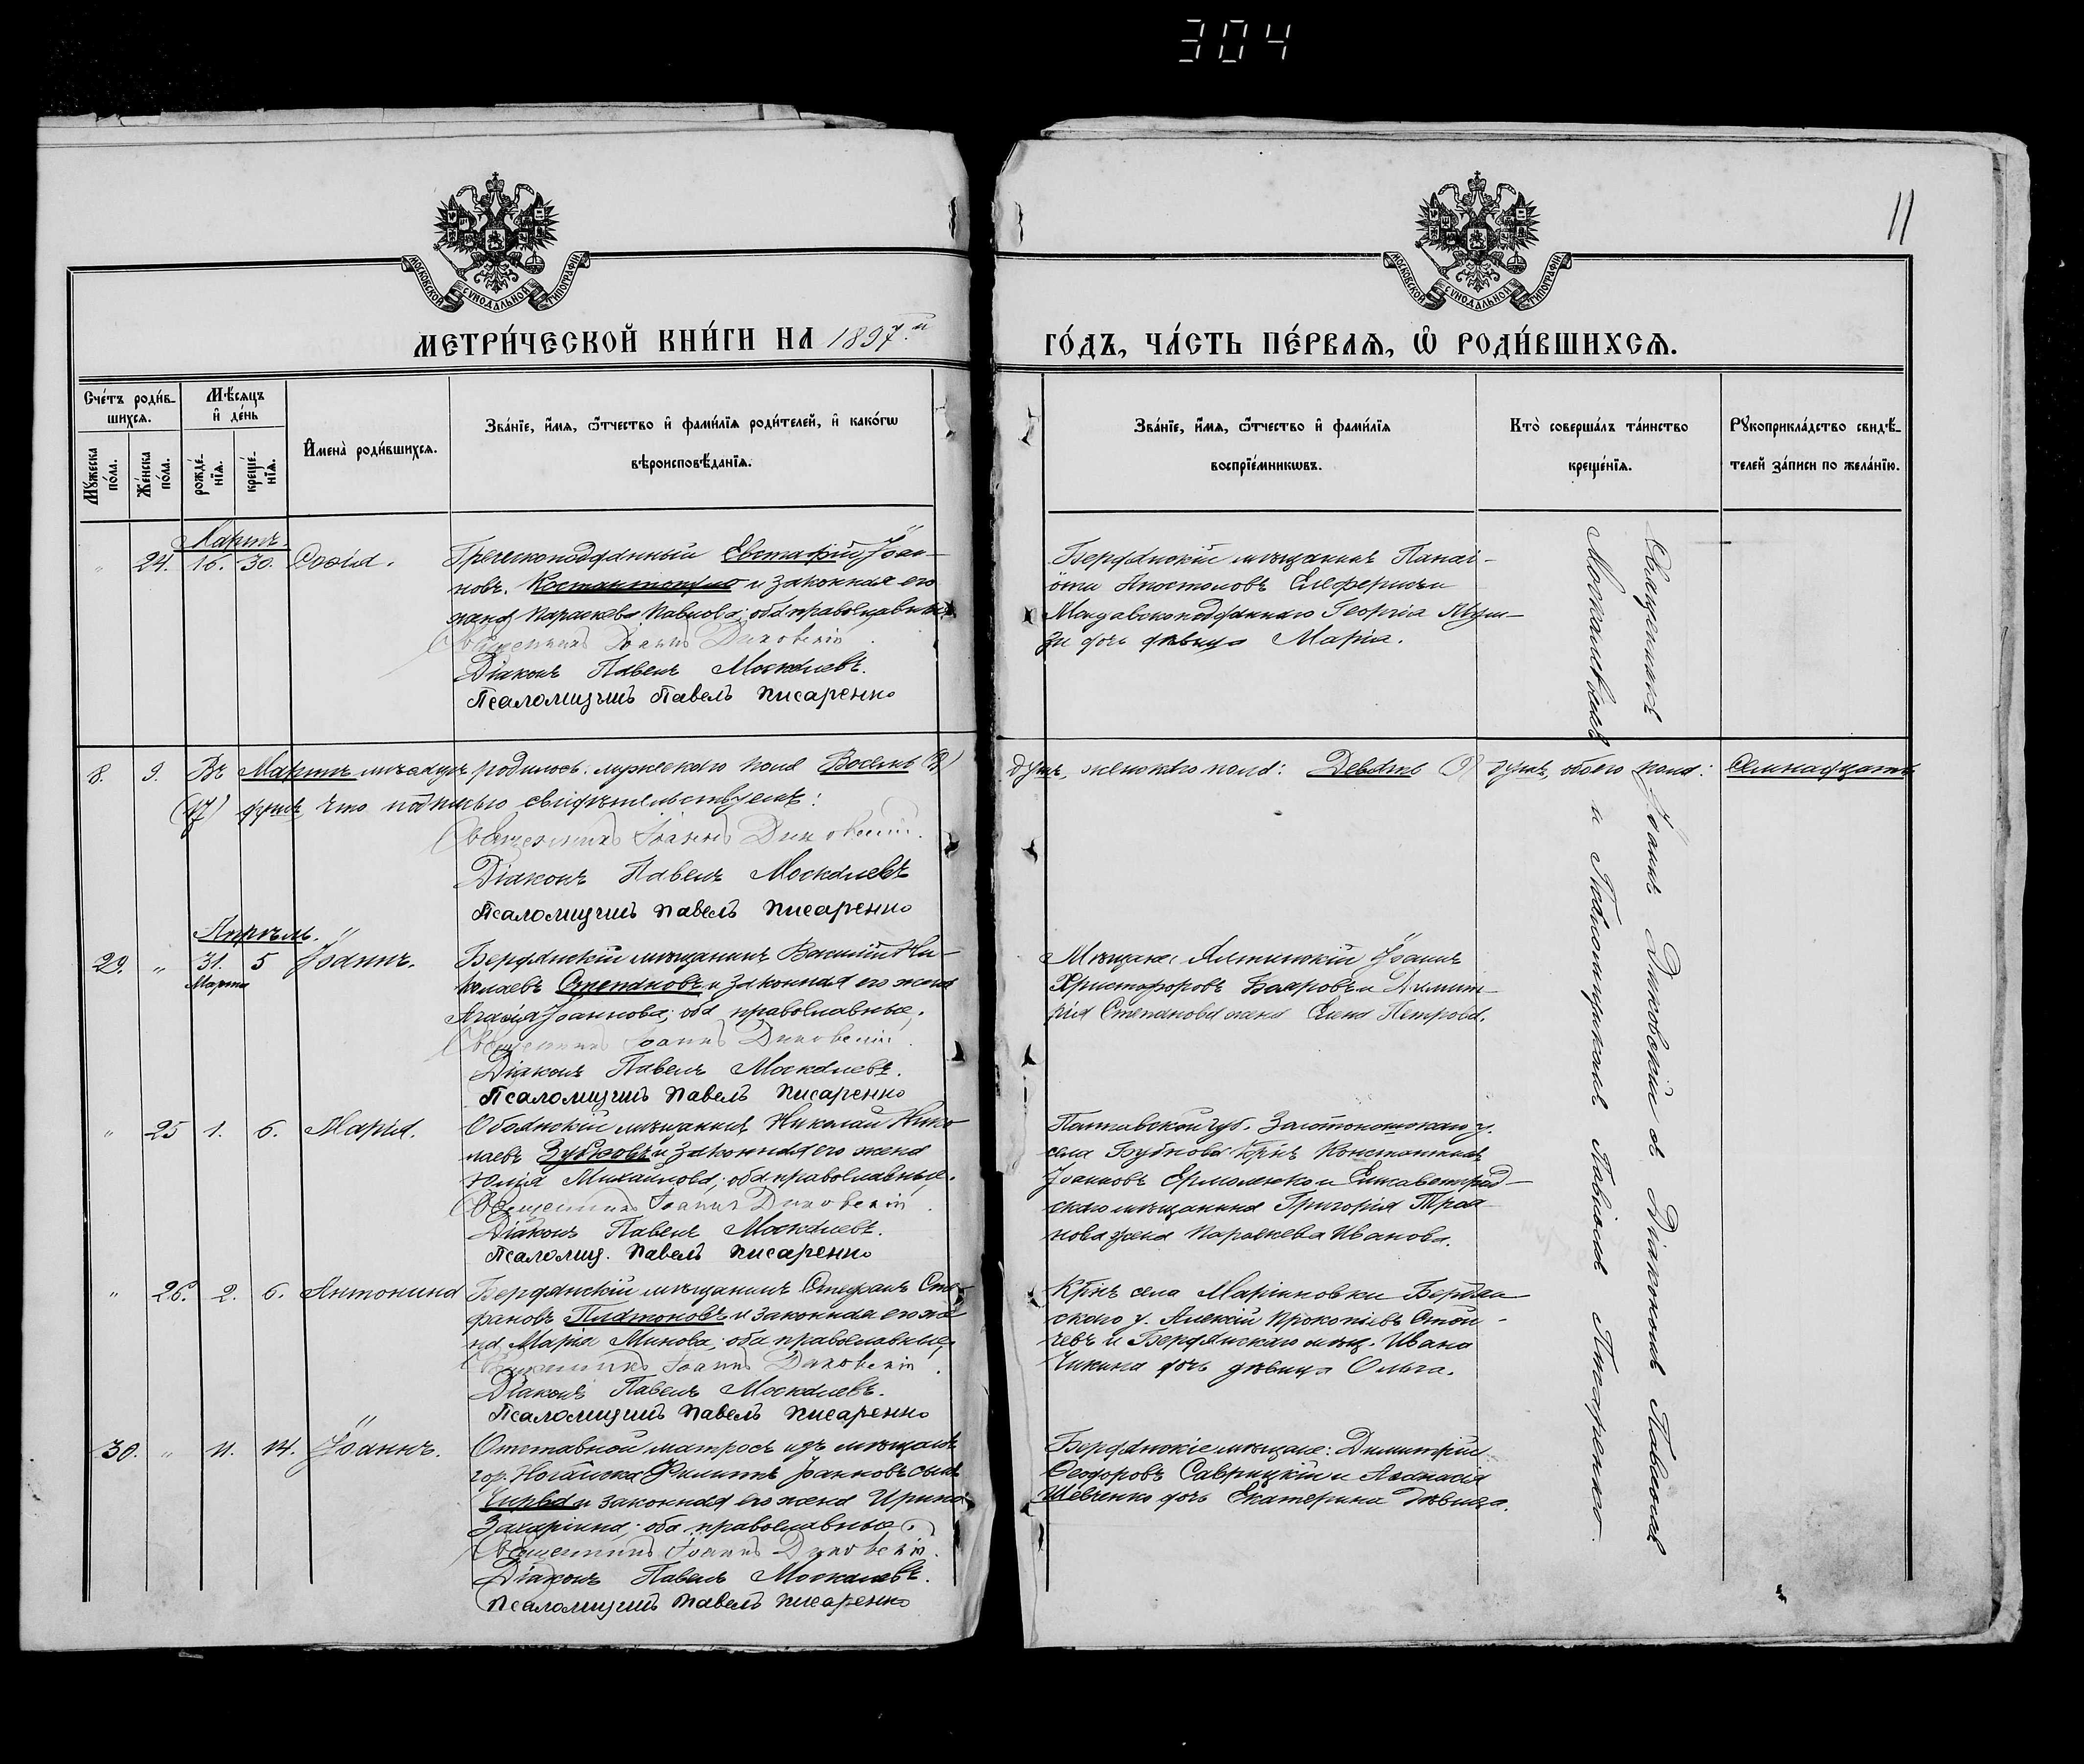 304
11
МОСКОВСКОЙ СѴНОДАЛЬНОЙ ТИПОГРАФІИ
МОСКОВСКОЙ СѴНОДАЛЬНОЙ ТИПОГРАФІИ
МЕТРИ́ЧЕСКОЙ КНИ́ГИ НА 1897.й
ГО́ДЪ, ЧА́СТЬ ПЕ́РВАѦ, Ѽ РОДИ́ВШИХСѦ.
Сче́тъ роди́в-
шихсѧ.
Мꙋ́жеска по́ла.
Же́нска по́ла.
Мѣ́сѧцъ
и҆ де́нь
рожде́-нїѧ.
креще́-нїѧ.
И҆мена̀ роди́вшихсѧ.
Зва́нїе, и҆́мѧ, ѻ҆́тчество и҆ фами́лїѧ роди́телей, и҆ како́гѡ
вѣроисповѣ́данїѧ.
Зва́нїе, и҆́мѧ, ѻ҆́тчество и҆ фами́лїѧ
воспрїе́мникѡвъ.
Кто̀ соверша́лъ та́инство
креще́нїѧ.
Рꙋкоприкла́дство свидѣ́-
телей за́писи по жела́нїю.
Мартъ.
" 24. 16. 30.
Греческоподданный Евстафій Іоан-
новъ и законная его
жена Параскева Павлова; оба православные
Священникъ Іоаннъ Диковскій
Діаконъ Павелъ Москалевъ.
Псаломщикъ Павелъ Писаренко
Бердянскій мѣщанинъ Панаі-
оти Апостоловъ и
Молдавскоподданнаго Георгія
дочь дѣвица Марія.
8. 9. Въ Мартѣ мѣсяцѣ родилось: мужескаго пола Восемь (8)
душъ, женскаго пола: Девять (9) душъ, обоего пола: Семнадцать
(17) душъ что подписью свидѣтельствуемъ:
Священникъ Іоаннъ Диковскій.
Діаконъ Павелъ Москалевъ
Псаломщикъ Павелъ Писаренко
Апрѣль.
29. " 31. 5 Іоаннъ.
Марта
Бердянскій мѣщанинъ Василій Ни-
колаевъ Степановъ и законная его жена
Іоаннова; оба православные.
Священникъ Іоаннъ Диковскій.
Діаконъ Павелъ Москалевъ.
Псаломщикъ Павелъ Писаренко
Мѣщане: Ялтинскій Іоаннъ
Христофоровъ и Димит-
рія Степанова жена Елена Петрова.
" 25 1. 6. Марія.
Обоянскій мѣщанинъ Николай Нико-
лаевъ Зубковъ и законная его жена
Юлія Михайлова; оба православные.
Священникъ Іоаннъ Диковскій.
Діаконъ Павелъ Москалевъ.
Псаломщ. Павелъ Писаренко
Полтавской губ. Золотоношскаго у.
села Бубнова кр-нъ Константинъ
Іоанновъ Ермоленко и Елисаветград-
скаго мѣщанина Григорія Троя-
нова жена Параскева Иванова.
" 26. 2. 6. Антонина
Бердянскій мѣщанинъ Стефанъ Сте-
фановъ Платоновъ и законная его же-
на Марія Минова; оба православные.
Священникъ Іоаннъ Диковскій.
Діаконъ Павелъ Москалевъ.
Псаломщикъ Павелъ Писаренко
Кр-нъ села Маріиновки Бердян-
скаго у. Алексій Прокопіевъ Стой-
чевъ и Бердянскаго мѣщ. Ивана
Чикина дочь дѣвица Ольга.
30. " 11. 14. Іоаннъ.
Отставной матросъ изъ мѣщанъ
гор. Ногайска Филиппъ Іоанновъ сынъ
Чирва и законная его жена Ирина
Захаріина; оба православные.
Священникъ Іоаннъ Диковскій.
Діаконъ Павелъ Москалевъ.
Псаломщикъ Павелъ Писаренко
Бердянскіе мѣщане: Димитрій
Ѳеодоровъ Саврицкій и Аѳанасія
Шевченко дочь Екатерина дѣвица.
Священникъ Іоаннъ Диковскій съ Діакономъ Павломъ
Москалевымъ и Псаломщикомъ Павломъ Писаренко.